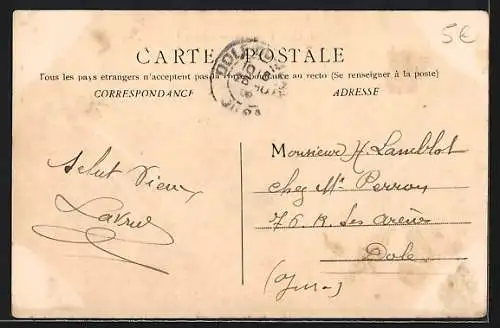 5€
CARTE POSTALE
Tous les pays étrangers n'acceptent pas la correspondance au recto (Se renseigner à la poste)
CORRESPONDANCE
ADRESSE
Monsieur H. Lamblot
chez Mr Perron
76 R. les arènes
Dole
(Jura)
Salut Vieux